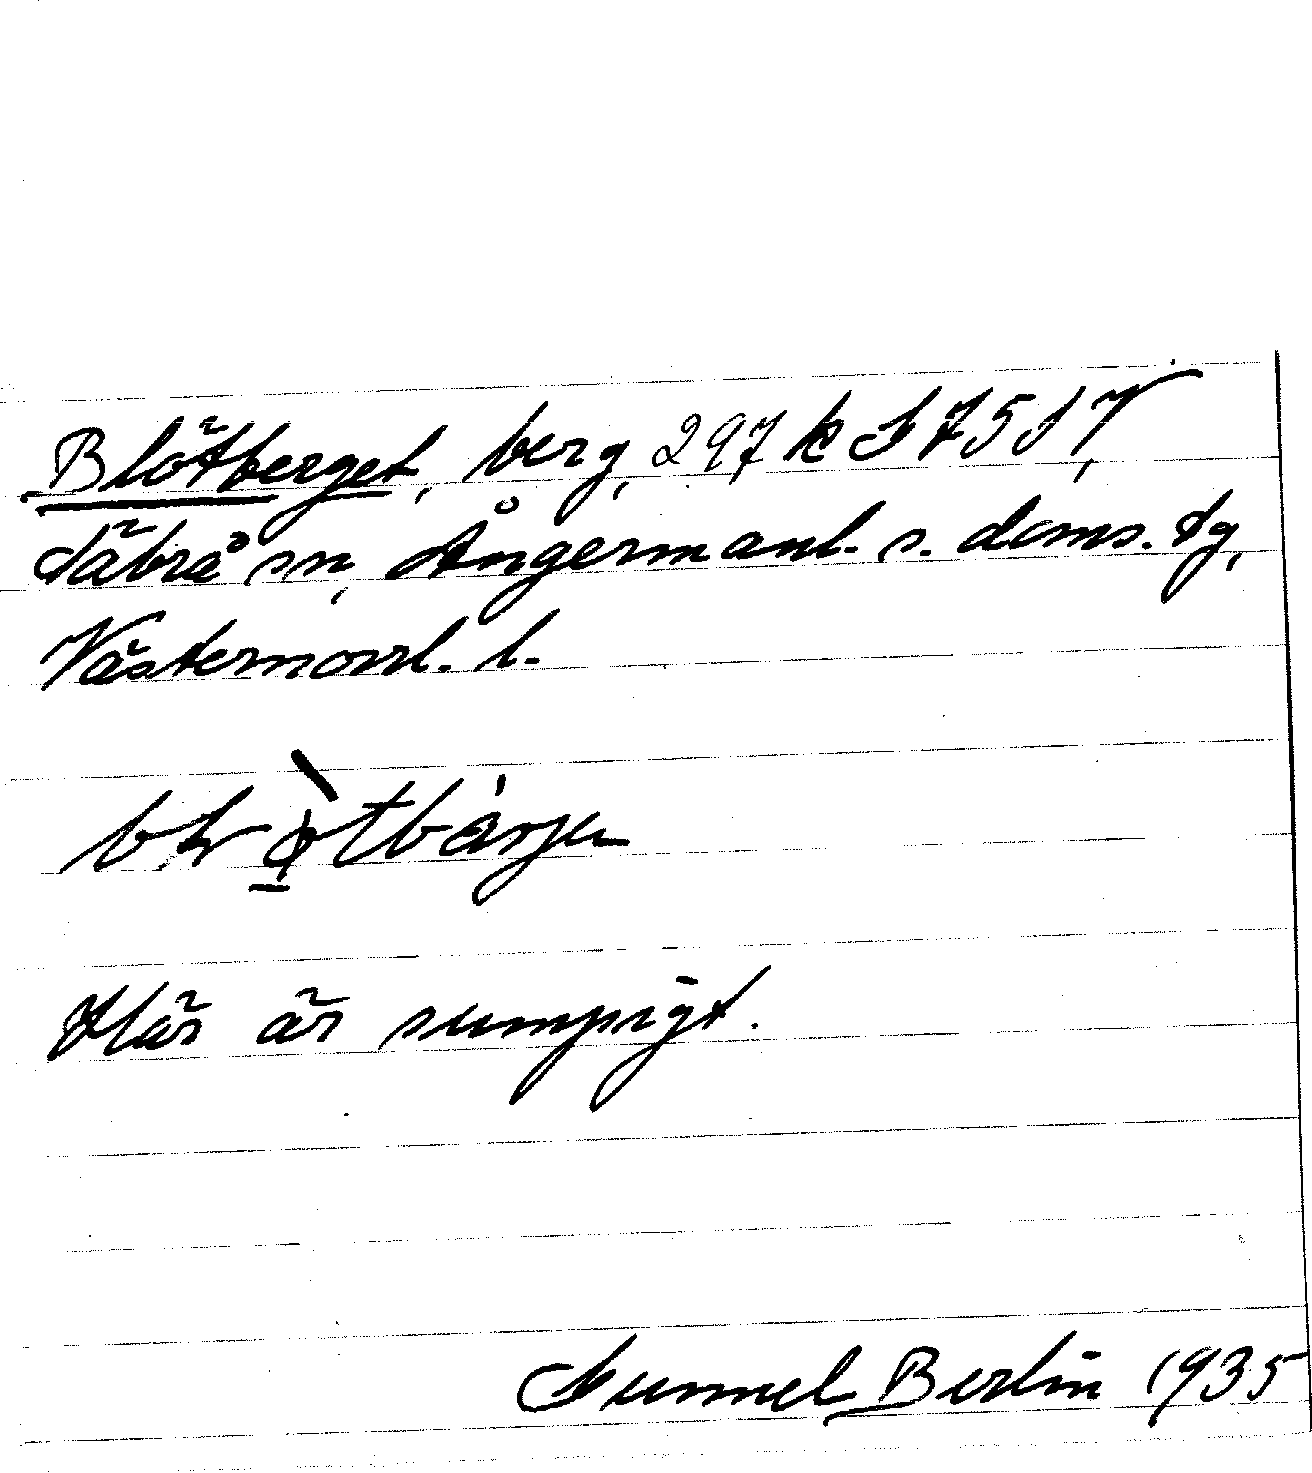 Blötberget, berg, 297 k S 7517,
Säbrå sn, Ångermanl. s. doms. tg,
Västernorrl. l.
Här är sumpigt.
Gunnel Berlin 1935